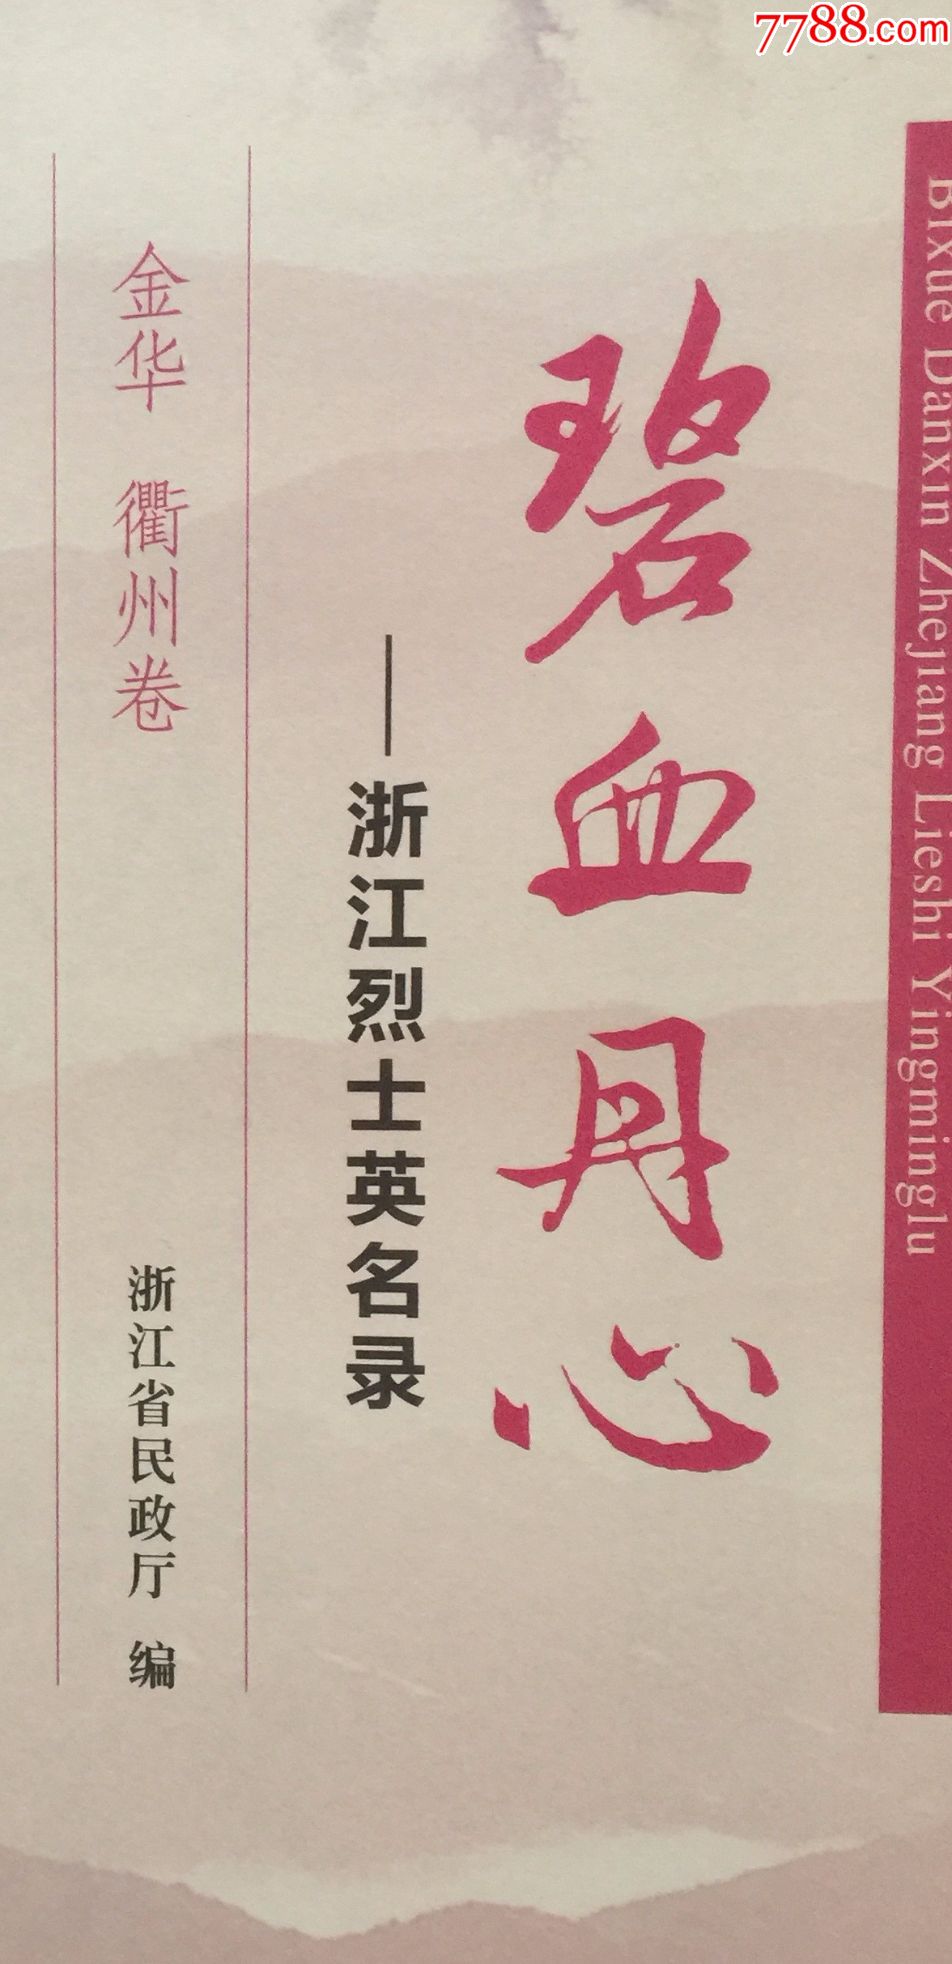 7788.com
Bixue Danxin Zhejiang Lieshi Yingminglu
碧血丹心
——浙江烈士英名录
金华 衢州卷
浙江省民政厅 编